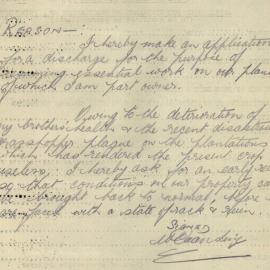 REASON —
I hereby make an application
for a discharge for the purpose of
essential work on our plan
of which I am part owner.
Owing to the deterioration of
my brother's health & the recent disastrous
grasshopper plague on the plantations
which has rendered the present crop
useless, I hereby ask for an early re
so that conditions on our property ca
brought back to normal, before
faced with a state of rack & ruin.
Signed